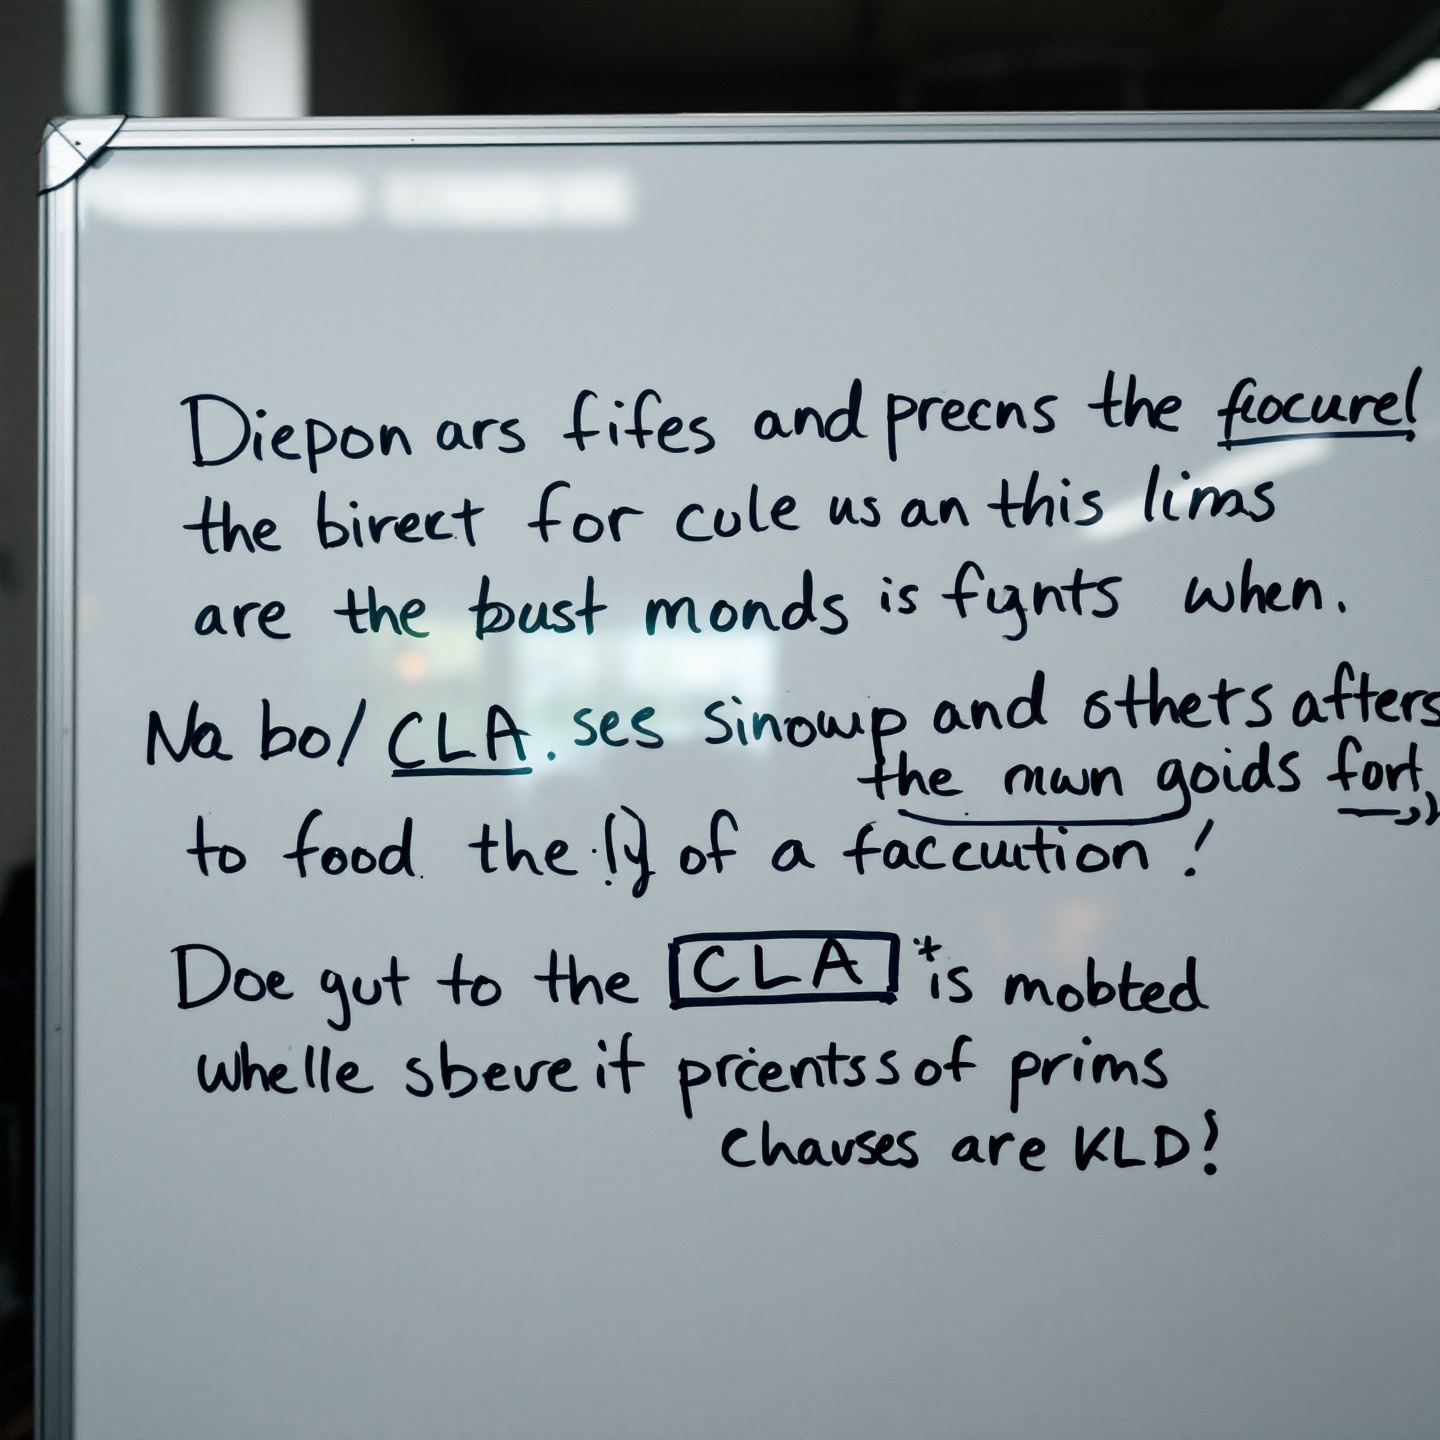 Diepon ars fifes and precns the focure!
the birect for cule us an this lims
are the bust monds is fignts when.
Na bo/ CLA. ses sinowp and others afters
the mwn goids fort,
to food the of a faccuition!
Doe gut to the CLA is mobted
whelle sbeve it prcentss of prims
Chauses are KLD!